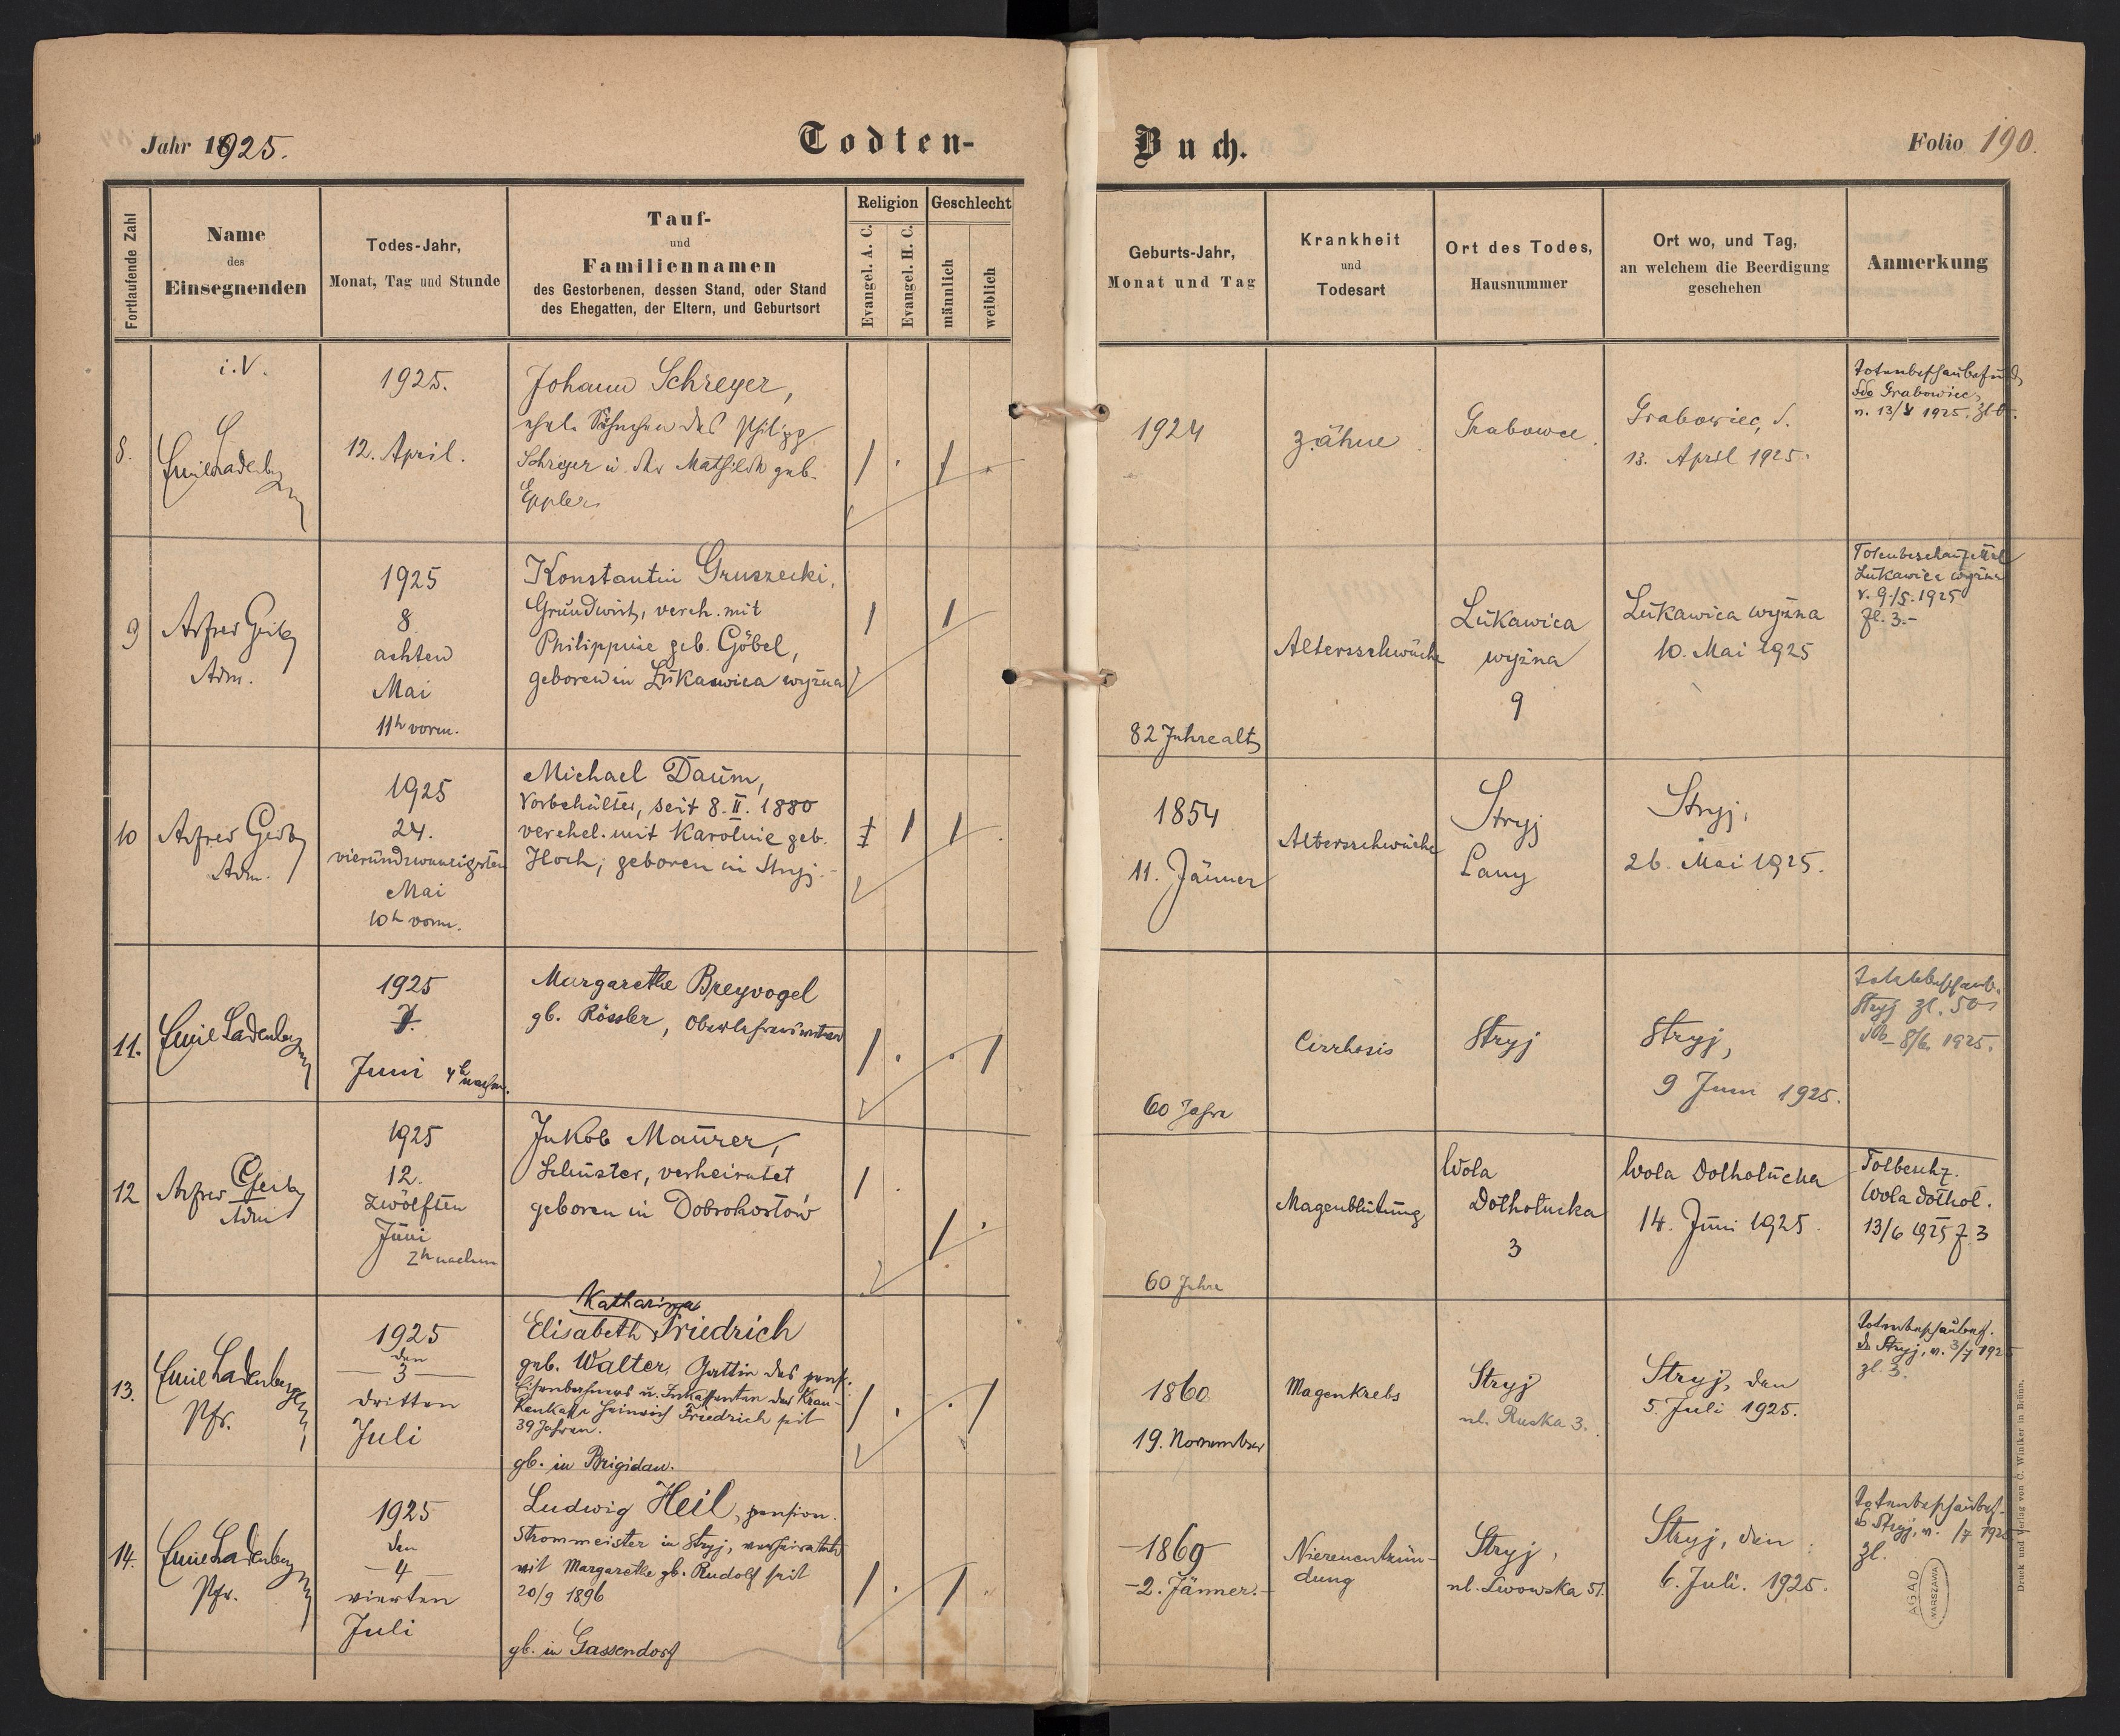 Jahr 1925.
Todten-
Buch.
Folio 190.
Fortlaufende Zahl
Name
des
Einsegnenden
Todes-Jahr,
Monat, Tag und Stunde
Tauf-
und
Familiennamen
des Gestorbenen, dessen Stand, oder Stand
des Ehegatten, der Eltern, und Geburtsort
Religion
Evangel. A. C.
Evangel. H. C.
Geschlecht
männlich
weiblich
Geburts-Jahr,
Monat und Tag
Krankheit
und
Todesart
Ort des Todes,
Hausnummer
Ort wo, und Tag,
an welchem die Beerdigung
geschehen
Anmerkung
8.
i. V.
Emil Ladenberger
1925.
12. April.
Johann Schreyer,
ehel. Söhnchen des Philipp
Schreyer u. der Mathilde geb.
Eppler
1924
Zähne
Grabowce.
Grabowiec, d.
13. April 1925.
Totenbeschaubefund
Grabowiec,
1925.
9
Alfred Gerb
Adm.
1925
8.
achten
Mai
11h vorm.
Konstantin Gruszecki,
Grundwirt, vereh. mit
Philippine geb. Göbel,
geboren in Łukawica wyżna
82 Jahre alt
Altersschwäche
Łukawica
wyżna
9
Łukawica wyżna
10. Mai 1925
Totenbeschauzettel
Łukawica wyżna
v. 9/5. 1925
Zl. 3.-
10
Alfred Gerb
Adm.
1925
24.
vierundzwanzigsten
Mai
10h vorm.
Michael Daum,
Vorbehälter, seit 8. II. 1880
verehel. mit Karoline geb.
Hoch; geboren in Stryj.-
1854
11. Jänner
Altersschwäche
Stryj
Łany
Stryj,
26. Mai 1925.
11.
Emil Ladenberger
1925
7.
Juni 4h nachm.
Margarethe Breyvogel
gb. Rössler, Oberlehrerswitwe
60 Jahre
Cirrhosis
Stryj
Stryj,
9 Juni 1925.
Stryj Zl. 50
8/6. 1925.
12
Alfred Gerb
Adm
1925
12.
zwölften
Juni
2h nachm
Jakob Maurer,
Schuster, verheiratet
geboren in Dobrohostów
60 Jahre
Magenblutung
Wola
Dołhołucka
3
Wola Dołholucka
14. Juni 1925.
Totbeschz.
Wola dołhoł.
13/6 1925 Z. 3
13.
Emil Ladenberger
Pfr.
1925
den
3
dritten
Juli
Katharina
Elisabeth Friedrich
geb. Walter, Gattin des pens.
Eisenbahners u. Inkassenten der Kran-
kenkasse Heinrich Friedrich seit
39 Jahren.
gb. in Brigidau.
1860
19. November
Magenkrebs
Stryj
ul. Ruska 3.
Stryj, den
5. Juli 1925.
Totenbeschaubef.
Stryj, v. 3/7 1925
Zl. 3.
14.
Emil Ladenberger
Pfr.
1925
den
4
vierten
Juli
Ludwig Heil, pension.
Strommeister in Stryj, verheiratet
mit Margarethe gb. Rudolf seit
20/9 1896
gb. in Gassendorf
1869
2. Jänner.
Nierenentzün-
dung
Stryj,
ul. Lwowska 51.
Stryj, den
6. Juli. 1925.
Totenbeschaubef.
Stryj, v. /7 1925
Zl.
AGAD
WARSZAWA
Druck und Verlag von C. Winiker in Brünn.